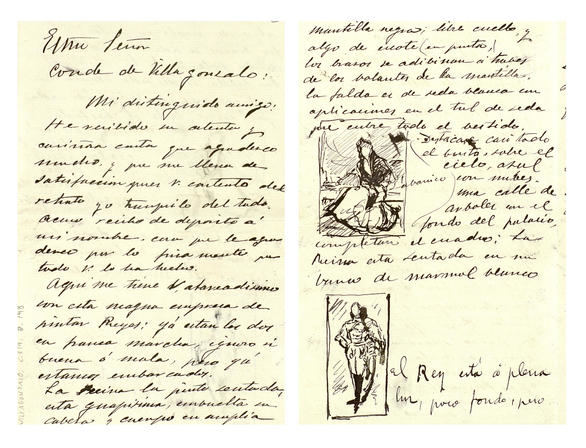 Exmo Señor
Conde de Villagonzalo:
Mi distinguido amigo:
He recibido su atenta y
cariñosa carta que agradezco
mucho, y que me llena de
satisfacción pues V. contento del
retrato yo tranquilo del todo.
recibo de deposito á
mi nombre, cosa que le agra-
dezco por lo
todo V. lo ha hecho.
Aqui me tiene V. atareadisimo
con esta magna empresa de
pintar Reyes; yá están los dos
en franca marcha, ignoro si
buena ó mala, pero yá
estamos embarcados.
La Reina la pinto sentada,
está guapisima, envuelta su
cabeza y cuerpo en amplia
mantilla negra; libre cuello, y
algo de escote (en punta)
los brazos se adibinan á través
de los volantes de la mantilla.
la falda es de seda blanca con
aplicaciones en el tul de seda
que cubre todo el vestido.
Destaca casi todo
el busto, sobre el
cielo, azul
abanico
con nubes.
una calle de
arboles en el
fondo del palacio,
completan el cuadro; La
Reina está sentada en un
banco de marmol blanco
el Rey está á plena
luz, poco fondo, pero